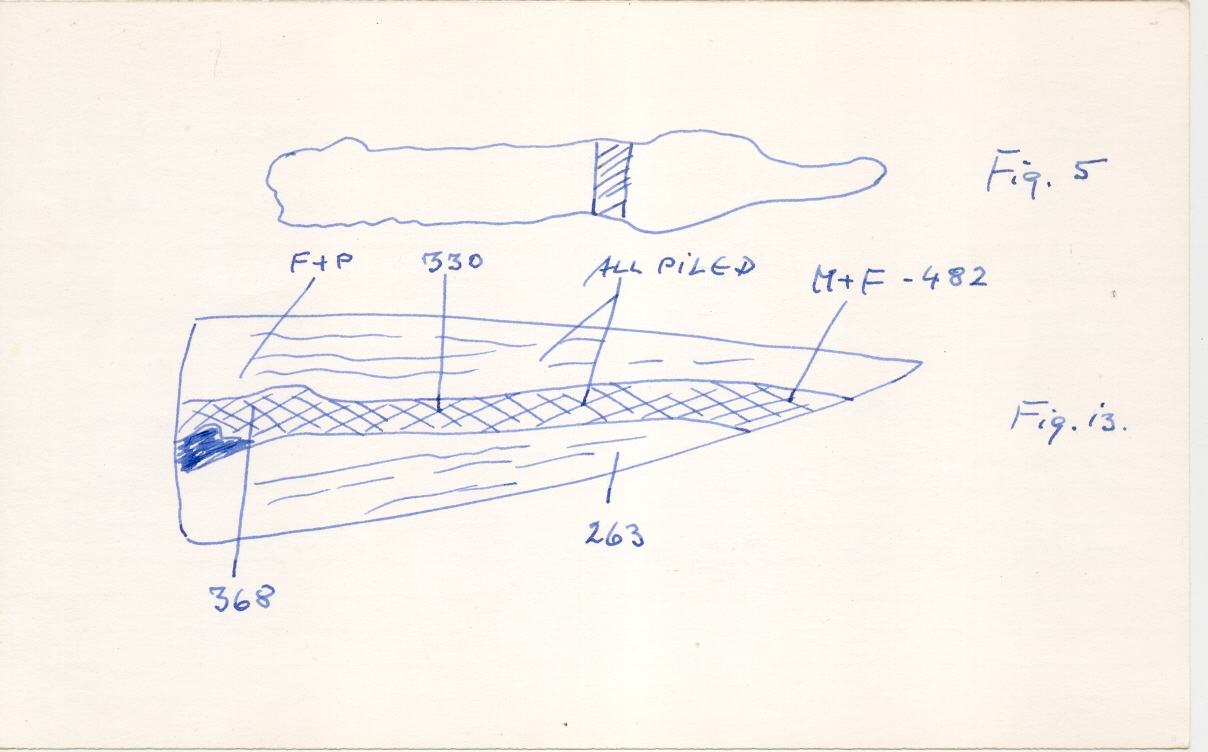 Fig. 5
F+P 330 ALL PiLED M+F - 482
Fig. 13.
263
368